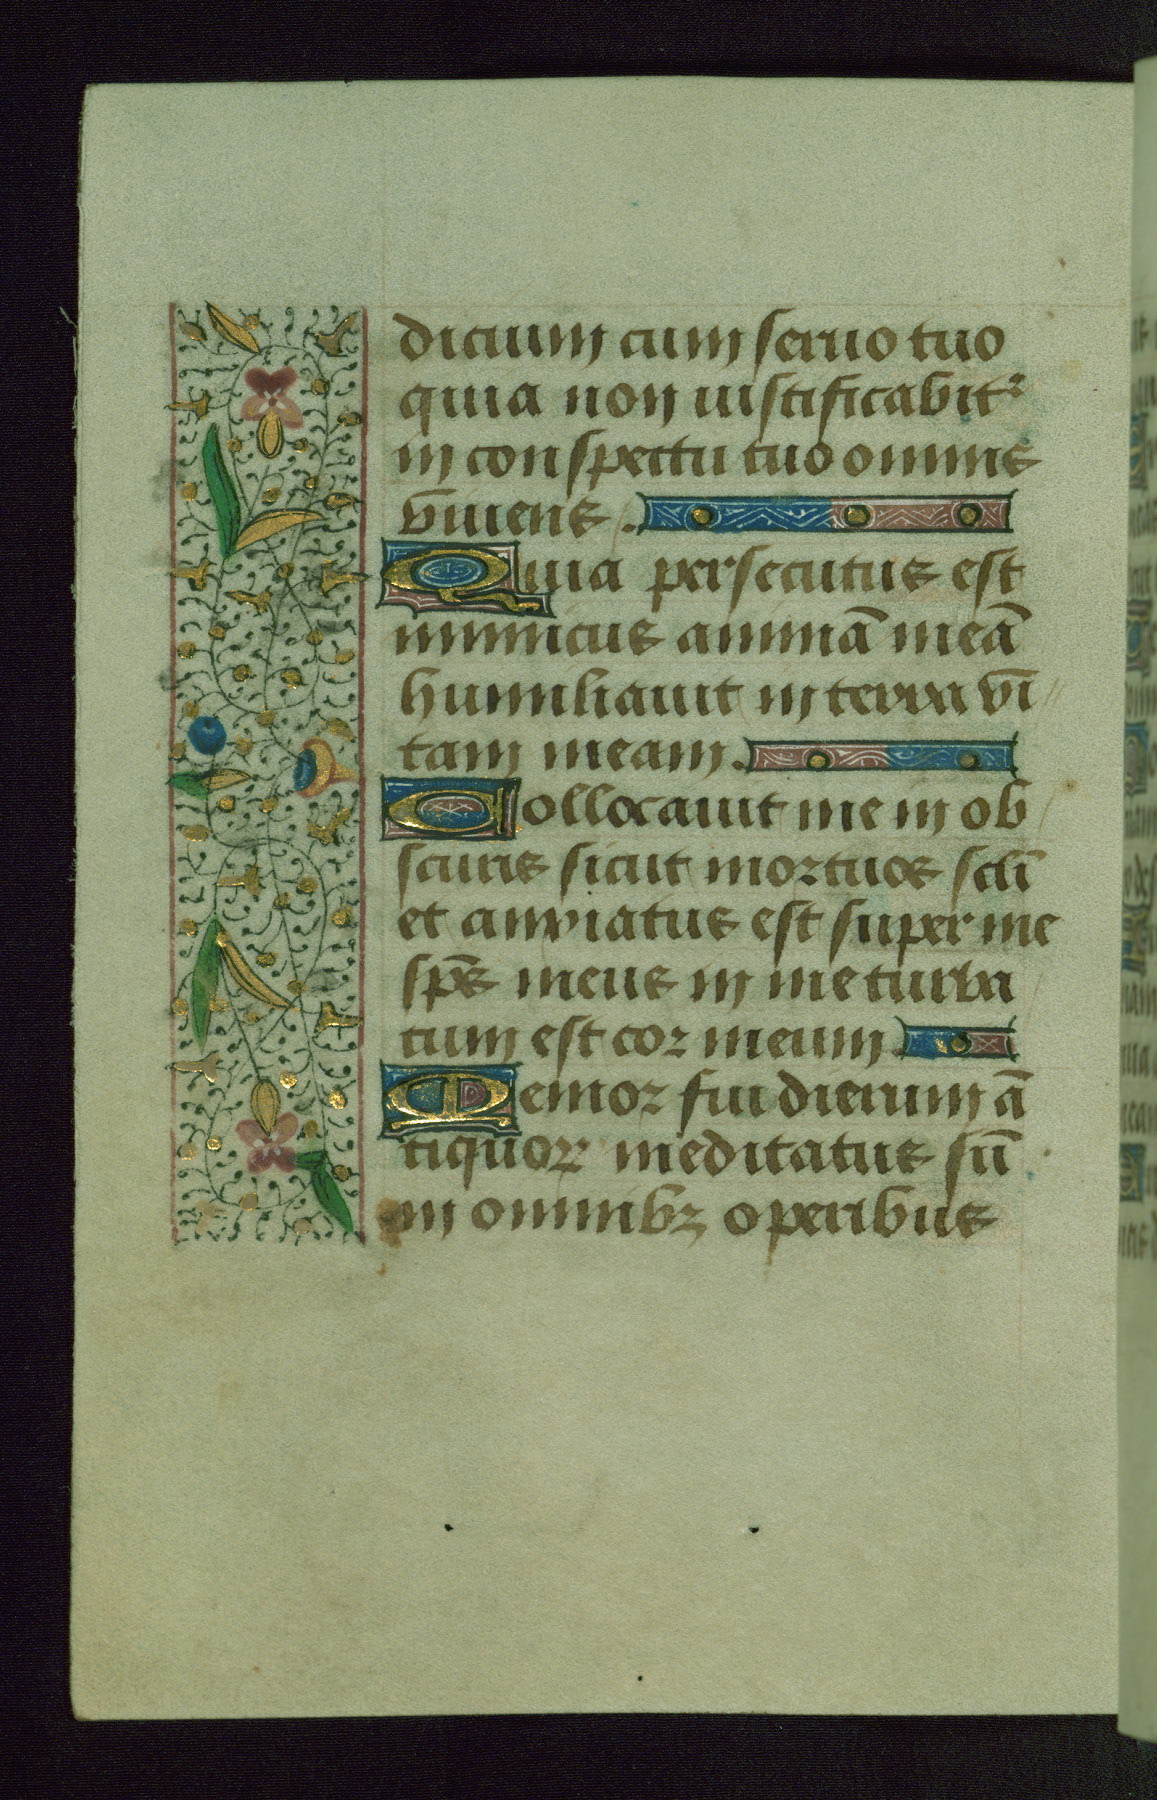 dicium cum seruo tuo
quia non iustificabit᷑
in conspectu tuo omnis
viuens.
Quia persecutus est
inimicus animā meā
humiliauit in terra vi
tam meam.
Collocauit me in ob
scuris sicut mortuos scli̅
et anxiatus est super me
sp̅s meus in me turba
tum est cor meum.
Memor fui dierum ā
tiquoꝝ meditatus sū
in omnibꝫ operibus